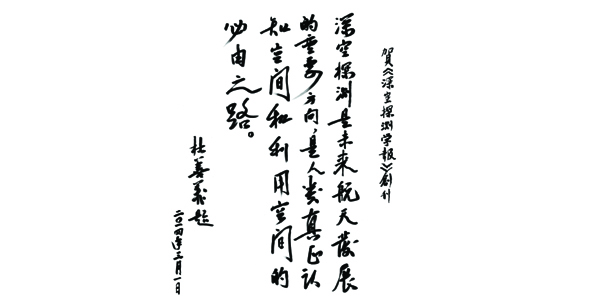 賀《深空探测学報》創刊
深空探测是未来航天發展
的重要方向,是人类真正认
知空间和利用空间的
必由之路。
杜善義题
二〇一四年三月一日